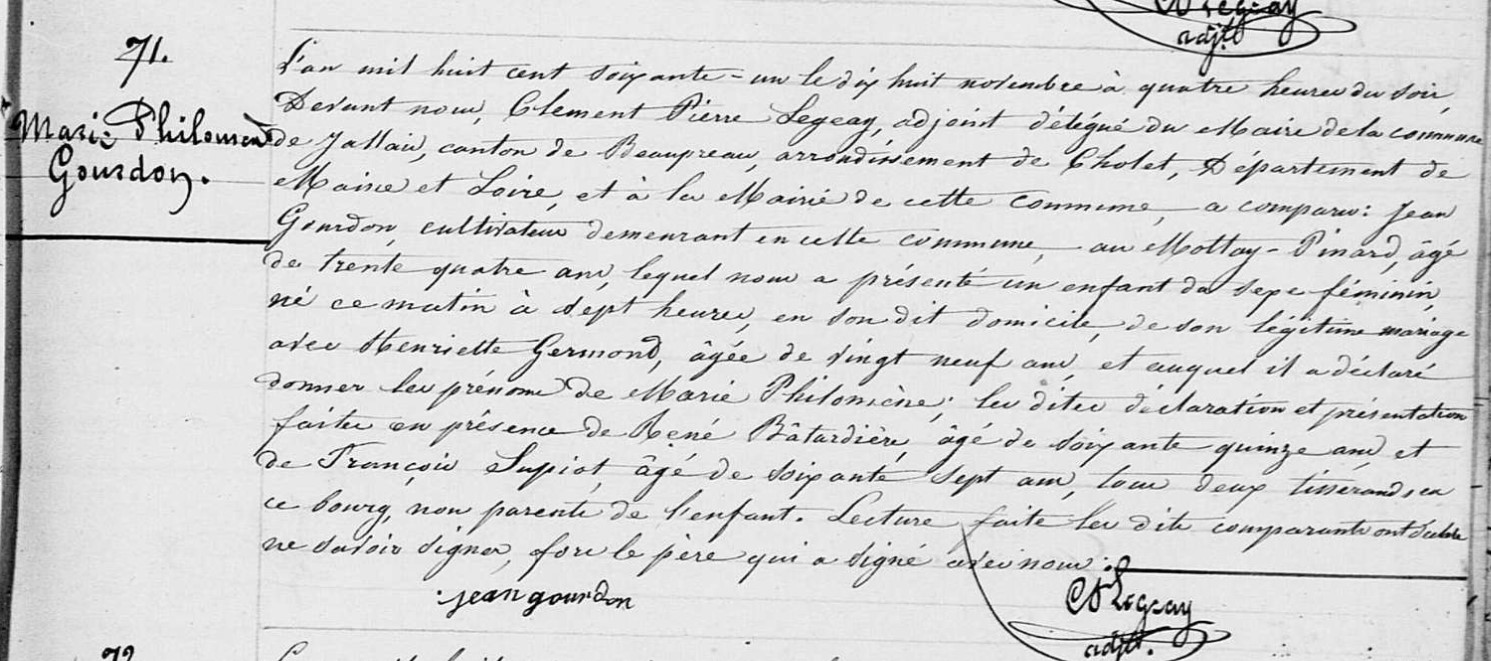 Legeay
adjt
71.
Marie Philomène
Gourdon.
L'an mil huit cent soixante-un le dix huit novembre à quatre heures du soir,
Devant nous, Clement Pierre Legeay, adjoint délégué du Maire de la commune
de Jallais, canton de Beaupreau, arrondissement de Cholet, Département de
Maine et Loire, et à la Mairie de cette commune, a comparu: Jean
Gourdon, cultivateur demeurant en cette commune, au Mottay-Pinard, âgé
de trente quatre ans, lequel nous a présenté un enfant du sexe féminin,
né ce matin à sept heures, en son dit domicile, de son légitime mariage
avec Henriette Germond, âgée de vingt neuf ans, et auquel il a déclaré
donner les prénoms de Marie Philomène; les dites déclaration et présentation
faites en présence de René Bâtardière, âgé de soixante quinze ans et
de François Supiot, âgé de soixante sept ans, tous deux tisserands en
ce bourg, non parents de l'enfant. Lecture faite les dits comparants ont déclaré
ne savoir signer, fors le père qui a signé avec nous:
jean gourdon
Legeay
adjt.
72